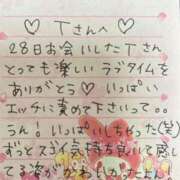 ♡Tさんへ♡
28日お会いしたTさん
とっても楽しいラブタイムを
ありがとう♡いっぱい
エッチに責めて下さいって。。
うん！いっちゃった(笑)
ずっとスゴイ気持ち良いて感じ
てる姿が かわいかったよん！